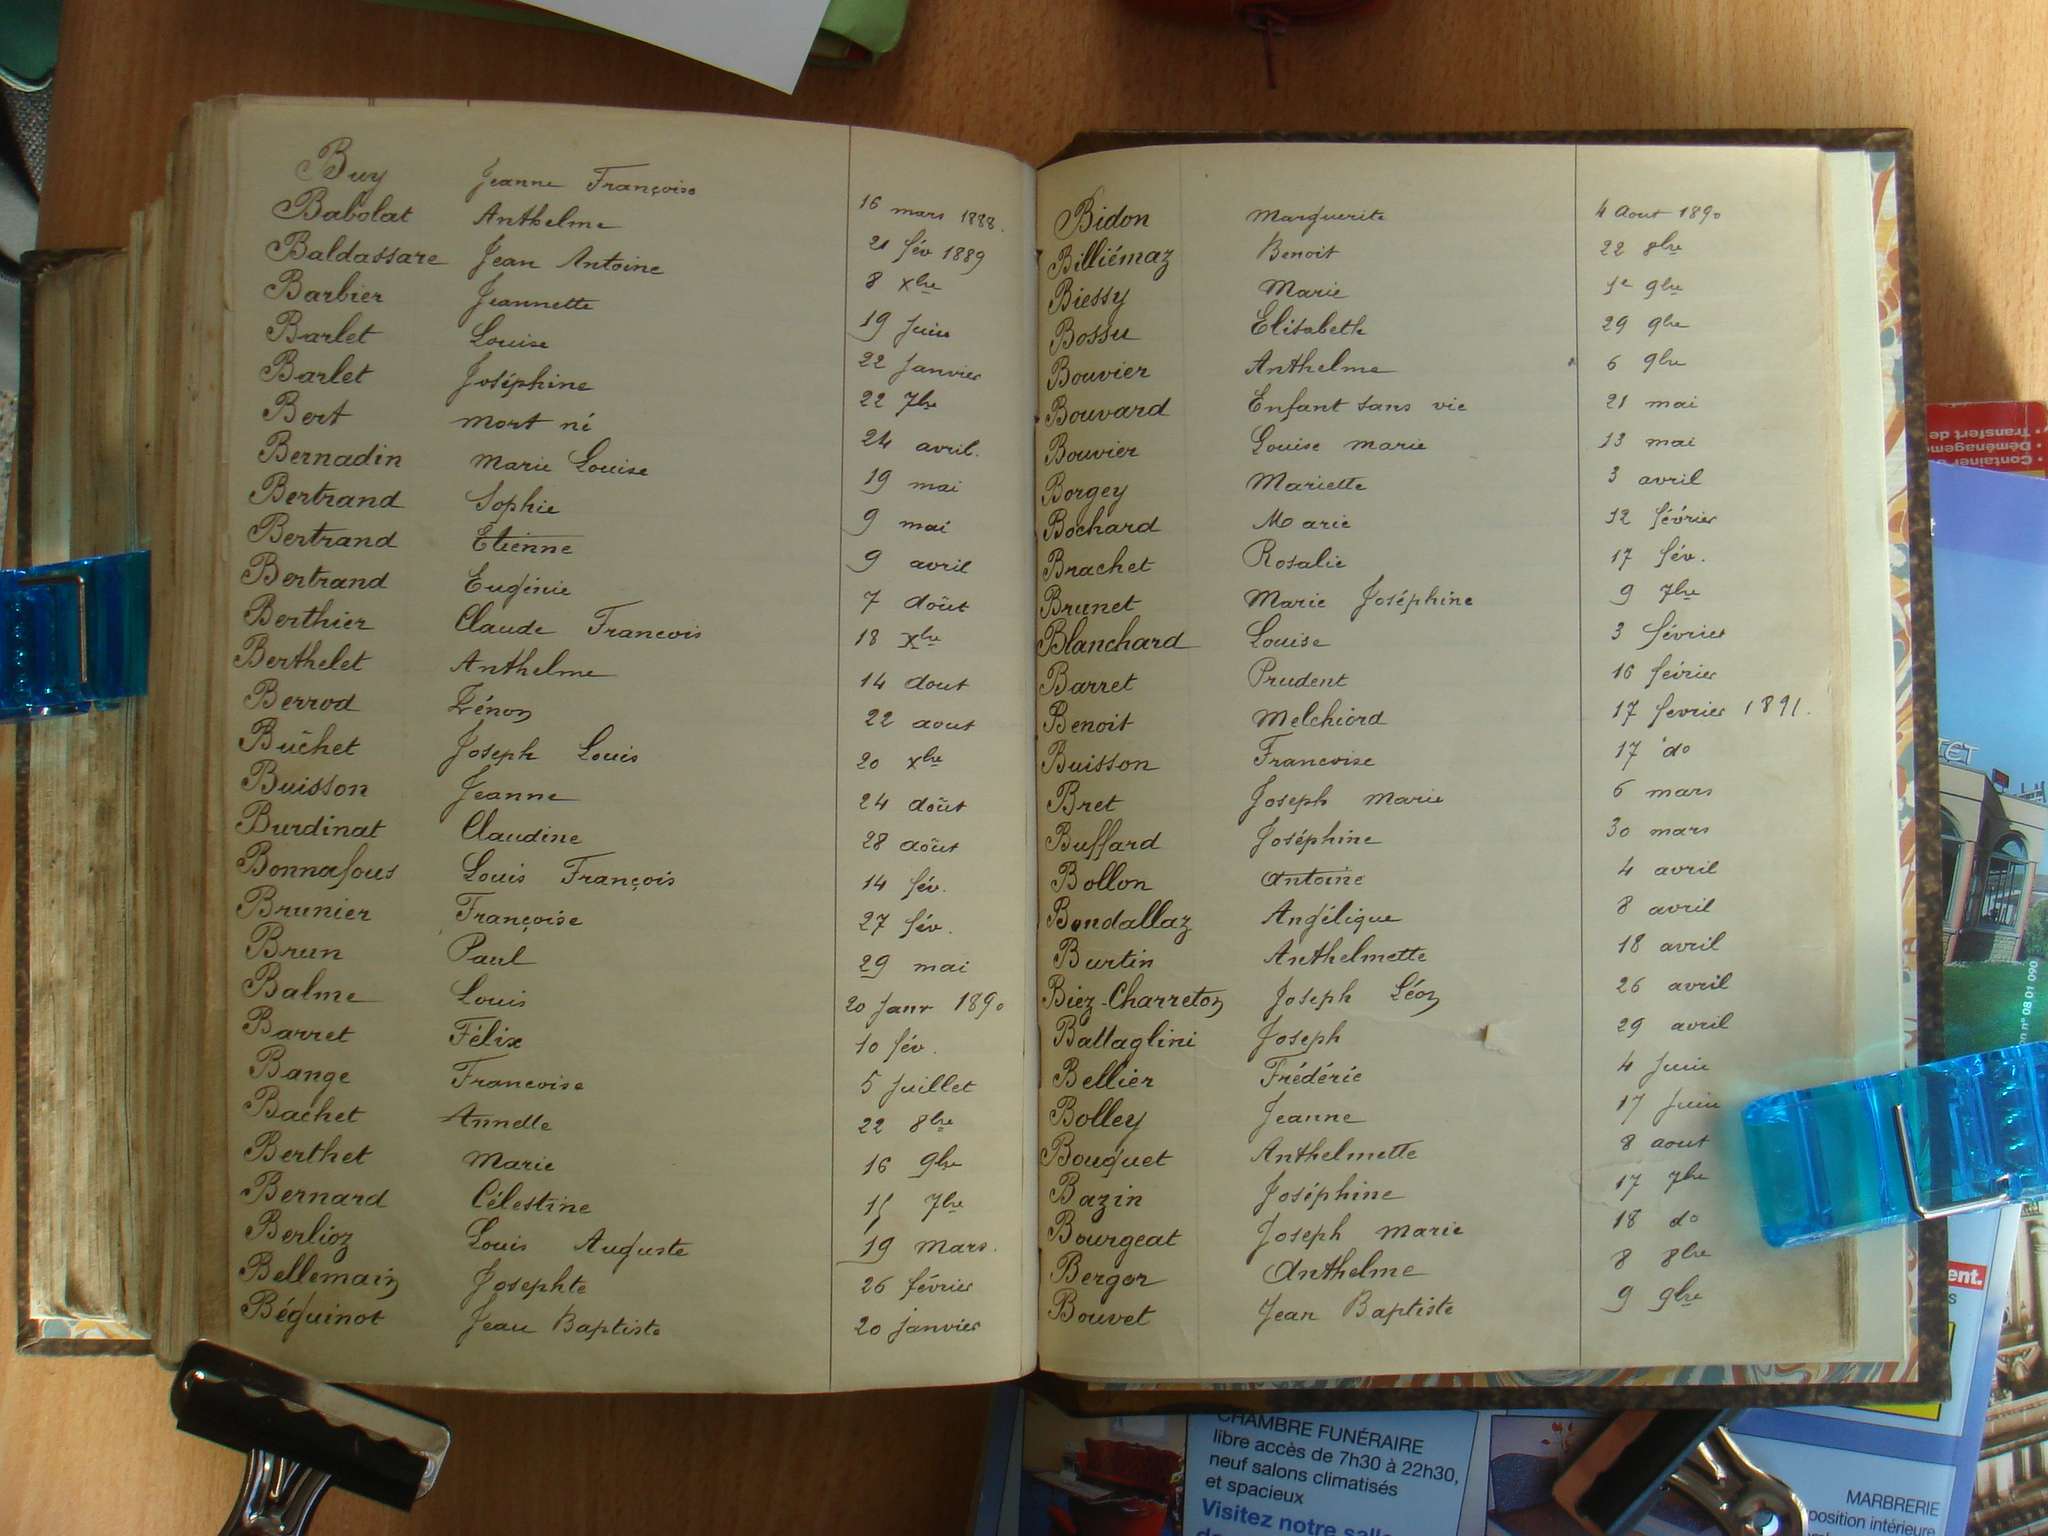 Buy Jeanne Françoise 16 mars 1888.
Babolat Anthelme 21 fév 1889
Baldassare Jean Antoine 8 xbre
Barbier Jeannette 19 Juin
Barlet Louise 22 Janvier
Barlet Joséphine 22 7bre
Bert mort né 24 avril.
Bernadin Marie Louise 19 mai
Bertrand Sophie 9 mai
Bertrand Etienne 9 avril
Bertrand Eugénie 7 août
Berthier Claude Francois 18 xbre
Berthelet Anthelme 14 aout
Berrod Zénon 22 aout
Buchet Joseph Louis 20 xbre
Buisson Jeanne 24 août
Burdinat Claudine 28 août
Bonnafous Louis François 14 fév.
Brunier Françoise 27 fév.
Brun Paul 29 mai
Balme Louis 20 Janr 1890
Barret Félix 10 fév.
Bange Francoise 5 Juillet
Bachet Annette 22 8bre
Berthet Marie 16 9bre
Bernard Célestine 7bre
Berlioz Louis Auguste 19 Mars.
Bellemain Josephte 26 février
Béguinot Jean Baptiste 20 janvier
Bidon Marguerite 4 Aout 1890
Billiémaz Benoit 22 8bre
Biessy Marie 1er 9bre
Bossu Elisabeth 29 9bre
Bouvier Anthelme 6 9bre
Bouvard Enfant sans vie 21 mai
Bouvier Louise marie 13 mai
Borgey Mariette 3 avril
Bochard Marie 12 février
Brachet Rosalie 17 fév.
Brunet Marie Joséphine 9 7bre
Blanchard Louise 3 février
Barret Prudent 16 février
Benoit Melchiord 17 fevrier 1891.
Buisson Francoise 17 do
Bret Joseph Marie 6 mars
Buffard Joséphine 30 mars
Bollon Antoine 4 avril
Bondallaz Angélique 8 avril
Burtin Anthelmette 18 avril
Biez-Charreton Joseph Léon 26 avril
Battaglini Joseph 29 avril
Bellier Frédéric 4 Juin
Bolley Jeanne 17 Juin
Bouquet Anthelmette 8 aout
Bazin Joséphine 17 7bre
Bourgeat Joseph Marie 18 do
Berger Anthelme 8 8bre
Bouvet Jean Baptiste 9 9bre
• Container
• Déménageme
• Transfert de
TET
n° 08 01 090
ent.
CHAMBRE FUNÉRAIRE
libre accès de 7h30 à 22h30,
neuf salons climatisés
et spacieux
Visitez notre salle
MARBRERIE
position intérieure